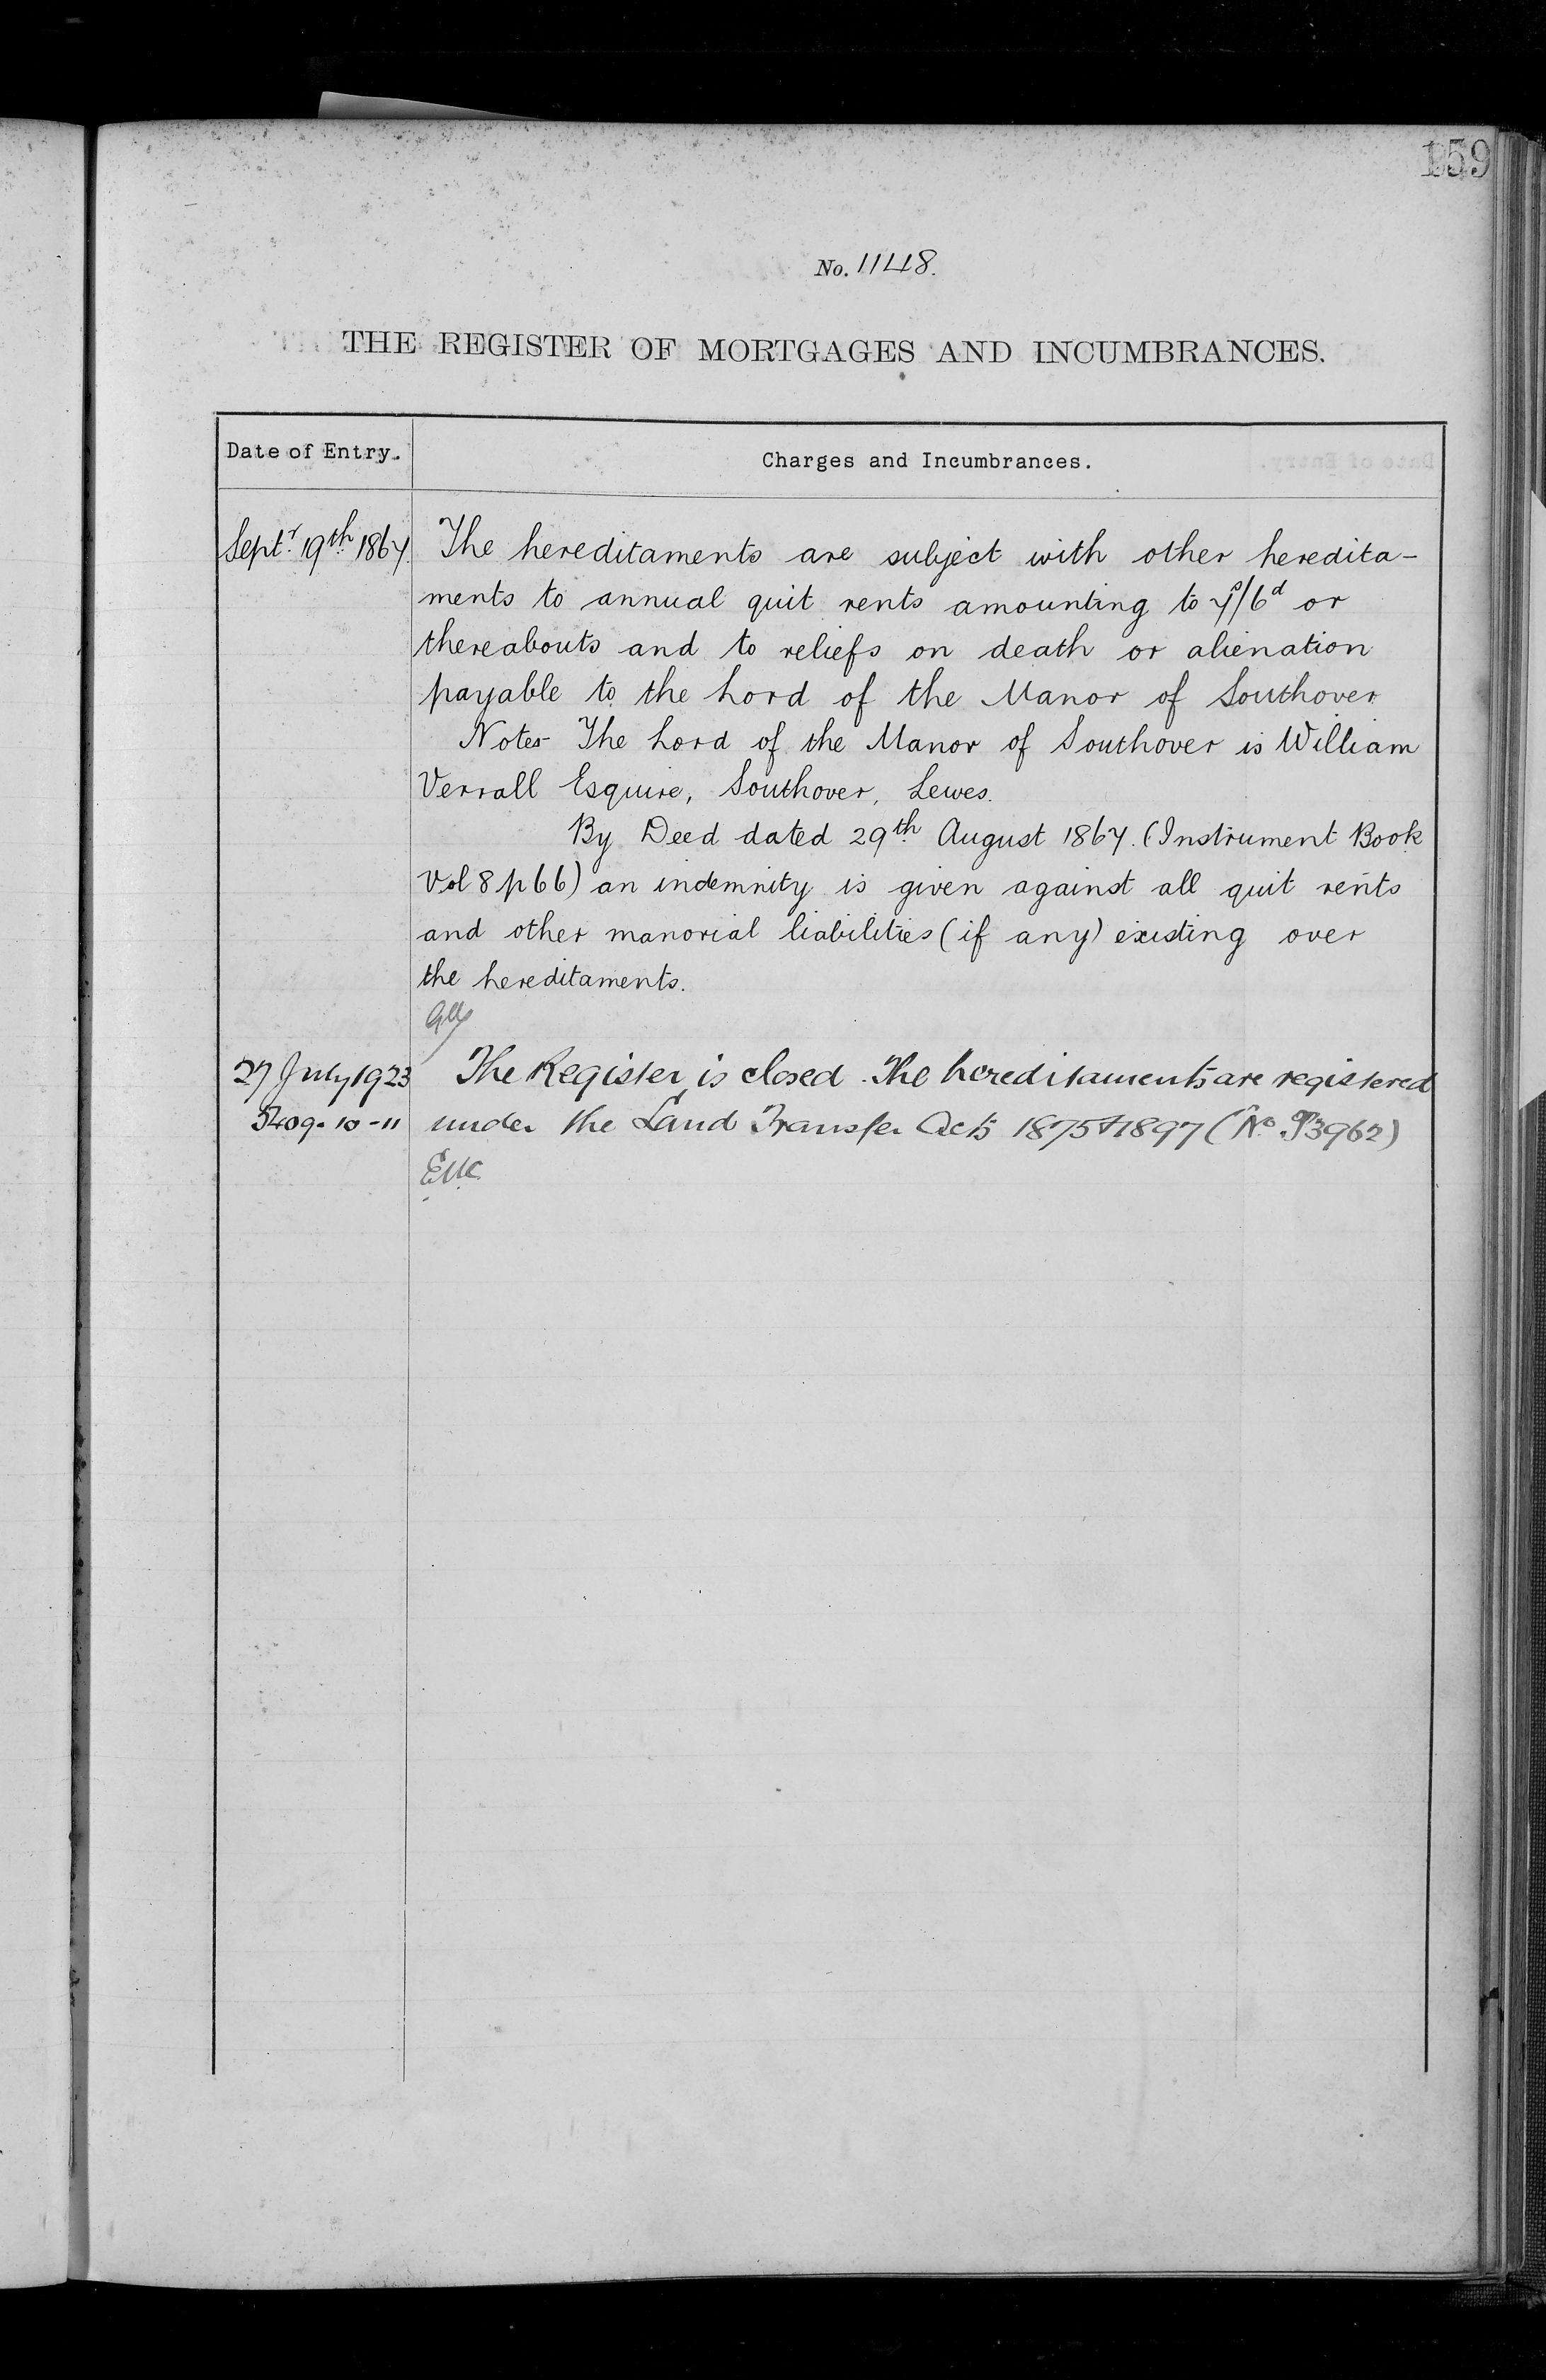 159
No. 1148.
THE REGISTER OF MORTGAGES AND INCUMBRANCES.
Date of Entry.
Charges and Incumbrances.
Septr. 19th. 1867.
The hereditaments are subject with other heredita-
ments to annual quit rents amounting to 7s/6d or
thereabouts and to reliefs on death or alienation
payable to the Lord of the Manor of Southover
Note The Lord of the Manor of Southover is William
Verrall Esquire, Southover, Lewes.
By Deed dated 29th. August 1867. (Instrument Book
Vol 8 p 66) an indemnity is given against all quit rents
and other manorial liabilities (if any) existing over
the hereditaments.
27 July 1923
The Register is closed. The hereditaments are registered
5409-10-11
under the Land Transfer Acts 1875 & 1897 (No. P3962)